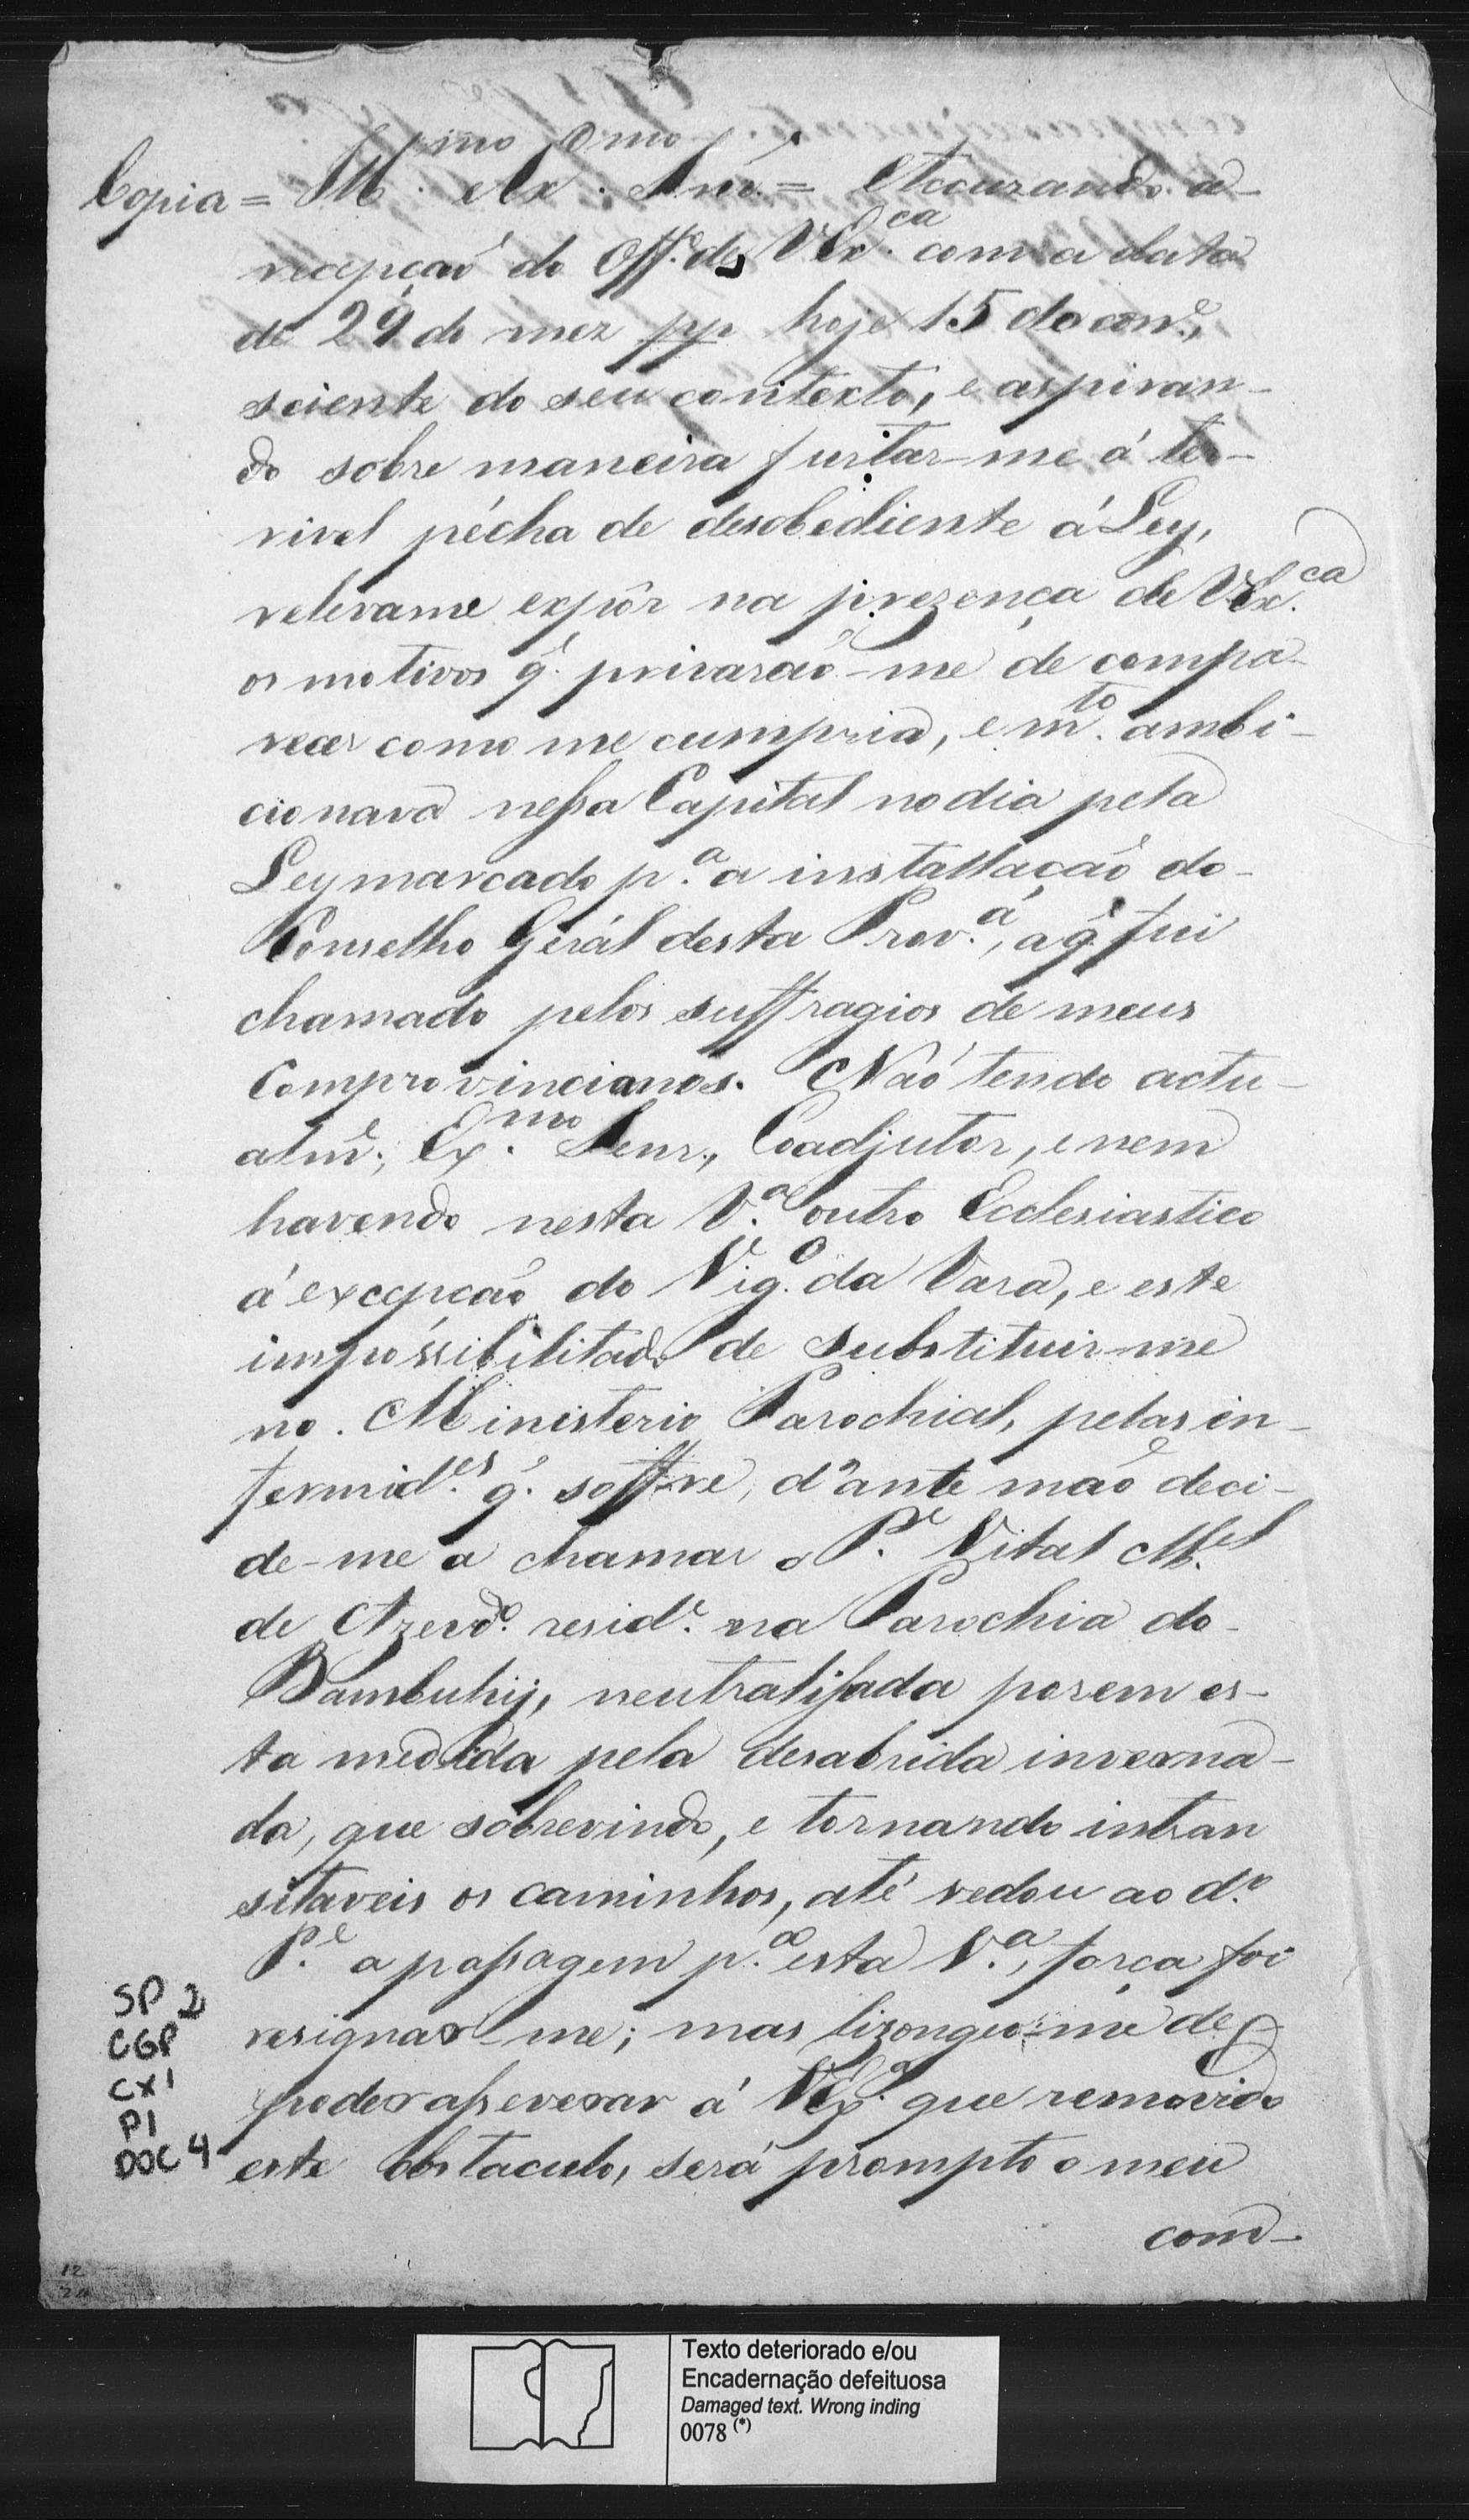 Copia = Ill.mo Ex.mo Snr. = Accuzando a
recepçaõ do Off.o de V.Ex.ca com a data
de 29 do mez pp hoje 15 do corr.e,
sciente do seu contexto, e aspiran-
do sobre maneira furtar-me á ter-
rivel pécha de desobediente á Ley,
relevame expôr na prezença de V.Ex.ca
os motivos q̃. privaraõ-me de compa-
recer como me cumpria, e m.to ambi-
cionava nessa Capital no dia pela
Ley marcado p.a a installaçaõ do
Conselho Gerál desta Prov.a, a q̃ fui
chamado pelos suffragios de meus
Comprovincianos. Naõ tendo actu-
alm.e, Ex.mo Senr., Coadjutor, e nem
havendo nesta V.a outro Ecclesiastico
á excepçaõ do Vig.o da Vara, e este
impossibilitado de substituir-me
no Ministerio Parochial, pelas in-
fermid.es q̃. soffre, d'ante maõ deci-
de-me a chamar o P.e Vital M.el
de Azeved.o resid.e na Parochia do
Bambuhij, neutralisada porem es-
ta medida pela desabrida inverna-
da, que sobrevindo, e tornando intran
sitaveis os caminhos, até vedou ao d.o
P.e a passagem p.a esta V.a, força foi
resignar-me; mas lizongeo-me de
poder asseverar á V.Ex.a que removido
este obstaculo, será prompto o meu
com-
SP 2
CGP
CX1
P1
DOC 4
Texto deteriorado e/ou
Encadernação defeituosa
Damaged text. Wrong inding
0078 (*)